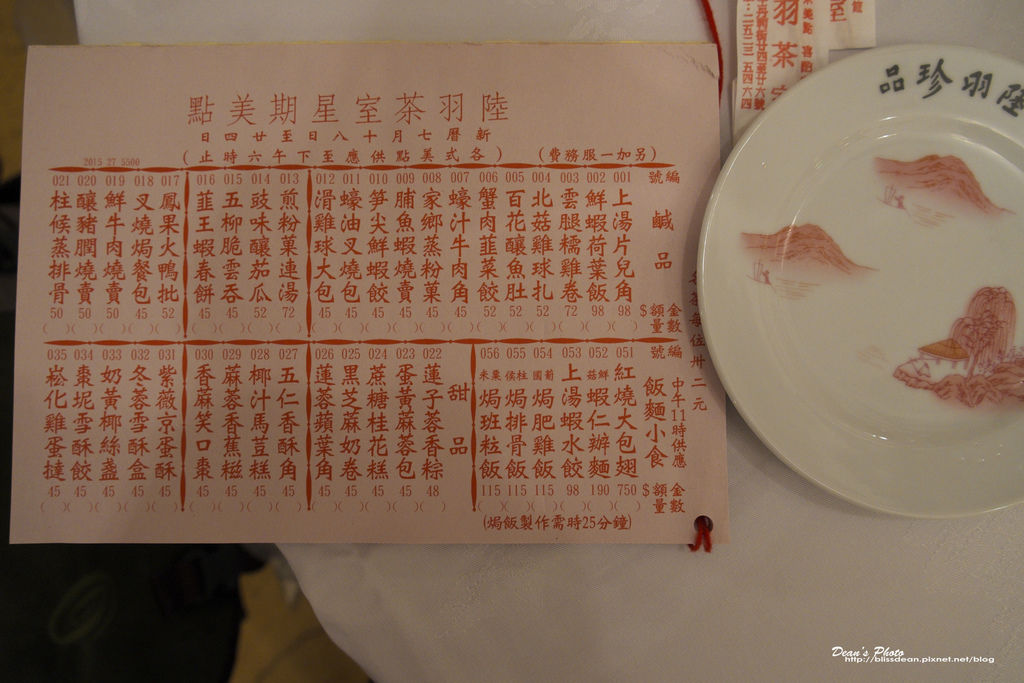 陸羽茶室星期美點
新曆七月十八日至廿四日
（各式美點供應至下午六時止）
（另加一服務費）
2015 27 5500
編號 鹹品 金額 $ 數量
001 上湯片兒角 98
002 鮮蝦荷葉飯 98
003 雲腿糯雞卷 72
004 北菇雞球扎 52
005 百花釀魚肚 52
006 蟹肉韮菜餃 52
007 蠔汁牛肉角 45
008 家鄉蒸粉菓 45
009 脯魚蝦燒賣 45
010 筍尖鮮蝦餃 45
011 蠔油叉燒包 45
012 滑雞球大包 45
013 煎粉菓連湯 72
014 豉味釀茄瓜 52
015 五柳脆雲吞 45
016 韮王蝦春餅 45
017 鳳果火鴨批 52
018 叉燒焗餐包 45
019 鮮牛肉燒賣 50
020 釀豬膶燒賣 50
021 柱侯蒸排骨 50
編號 飯麵小食 中午11時供應 金額 $ 數量
051 紅燒大包翅 750
052 鮮菇蝦仁辦麵 190
053 上湯蝦水餃 98
054 葡國焗肥雞飯 115
055 柱侯焗排骨飯 115
056 粟米焗班粒飯 115
甜品
022 蓮子蓉香粽 48
023 蛋黃麻蓉包 45
024 蔗糖桂花糕 45
025 黑芝麻奶卷 45
026 蓮蓉蘋葉角 45
027 五仁香酥角 45
028 椰汁馬豆糕 45
029 蔴蓉香蕉糍 45
030 香麻笑口棗 45
031 紫薇京蛋酥 45
032 冬蓉雪酥盒 45
033 奶黃椰絲盞 45
034 棗坭雪酥餃 45
035 崧化雞蛋撻 45
（焗飯製作需時25分鐘）
每位卅二元
陸羽珍品
羽茶室
Dean's Photo
http://blissdean.pixnet.net/blog